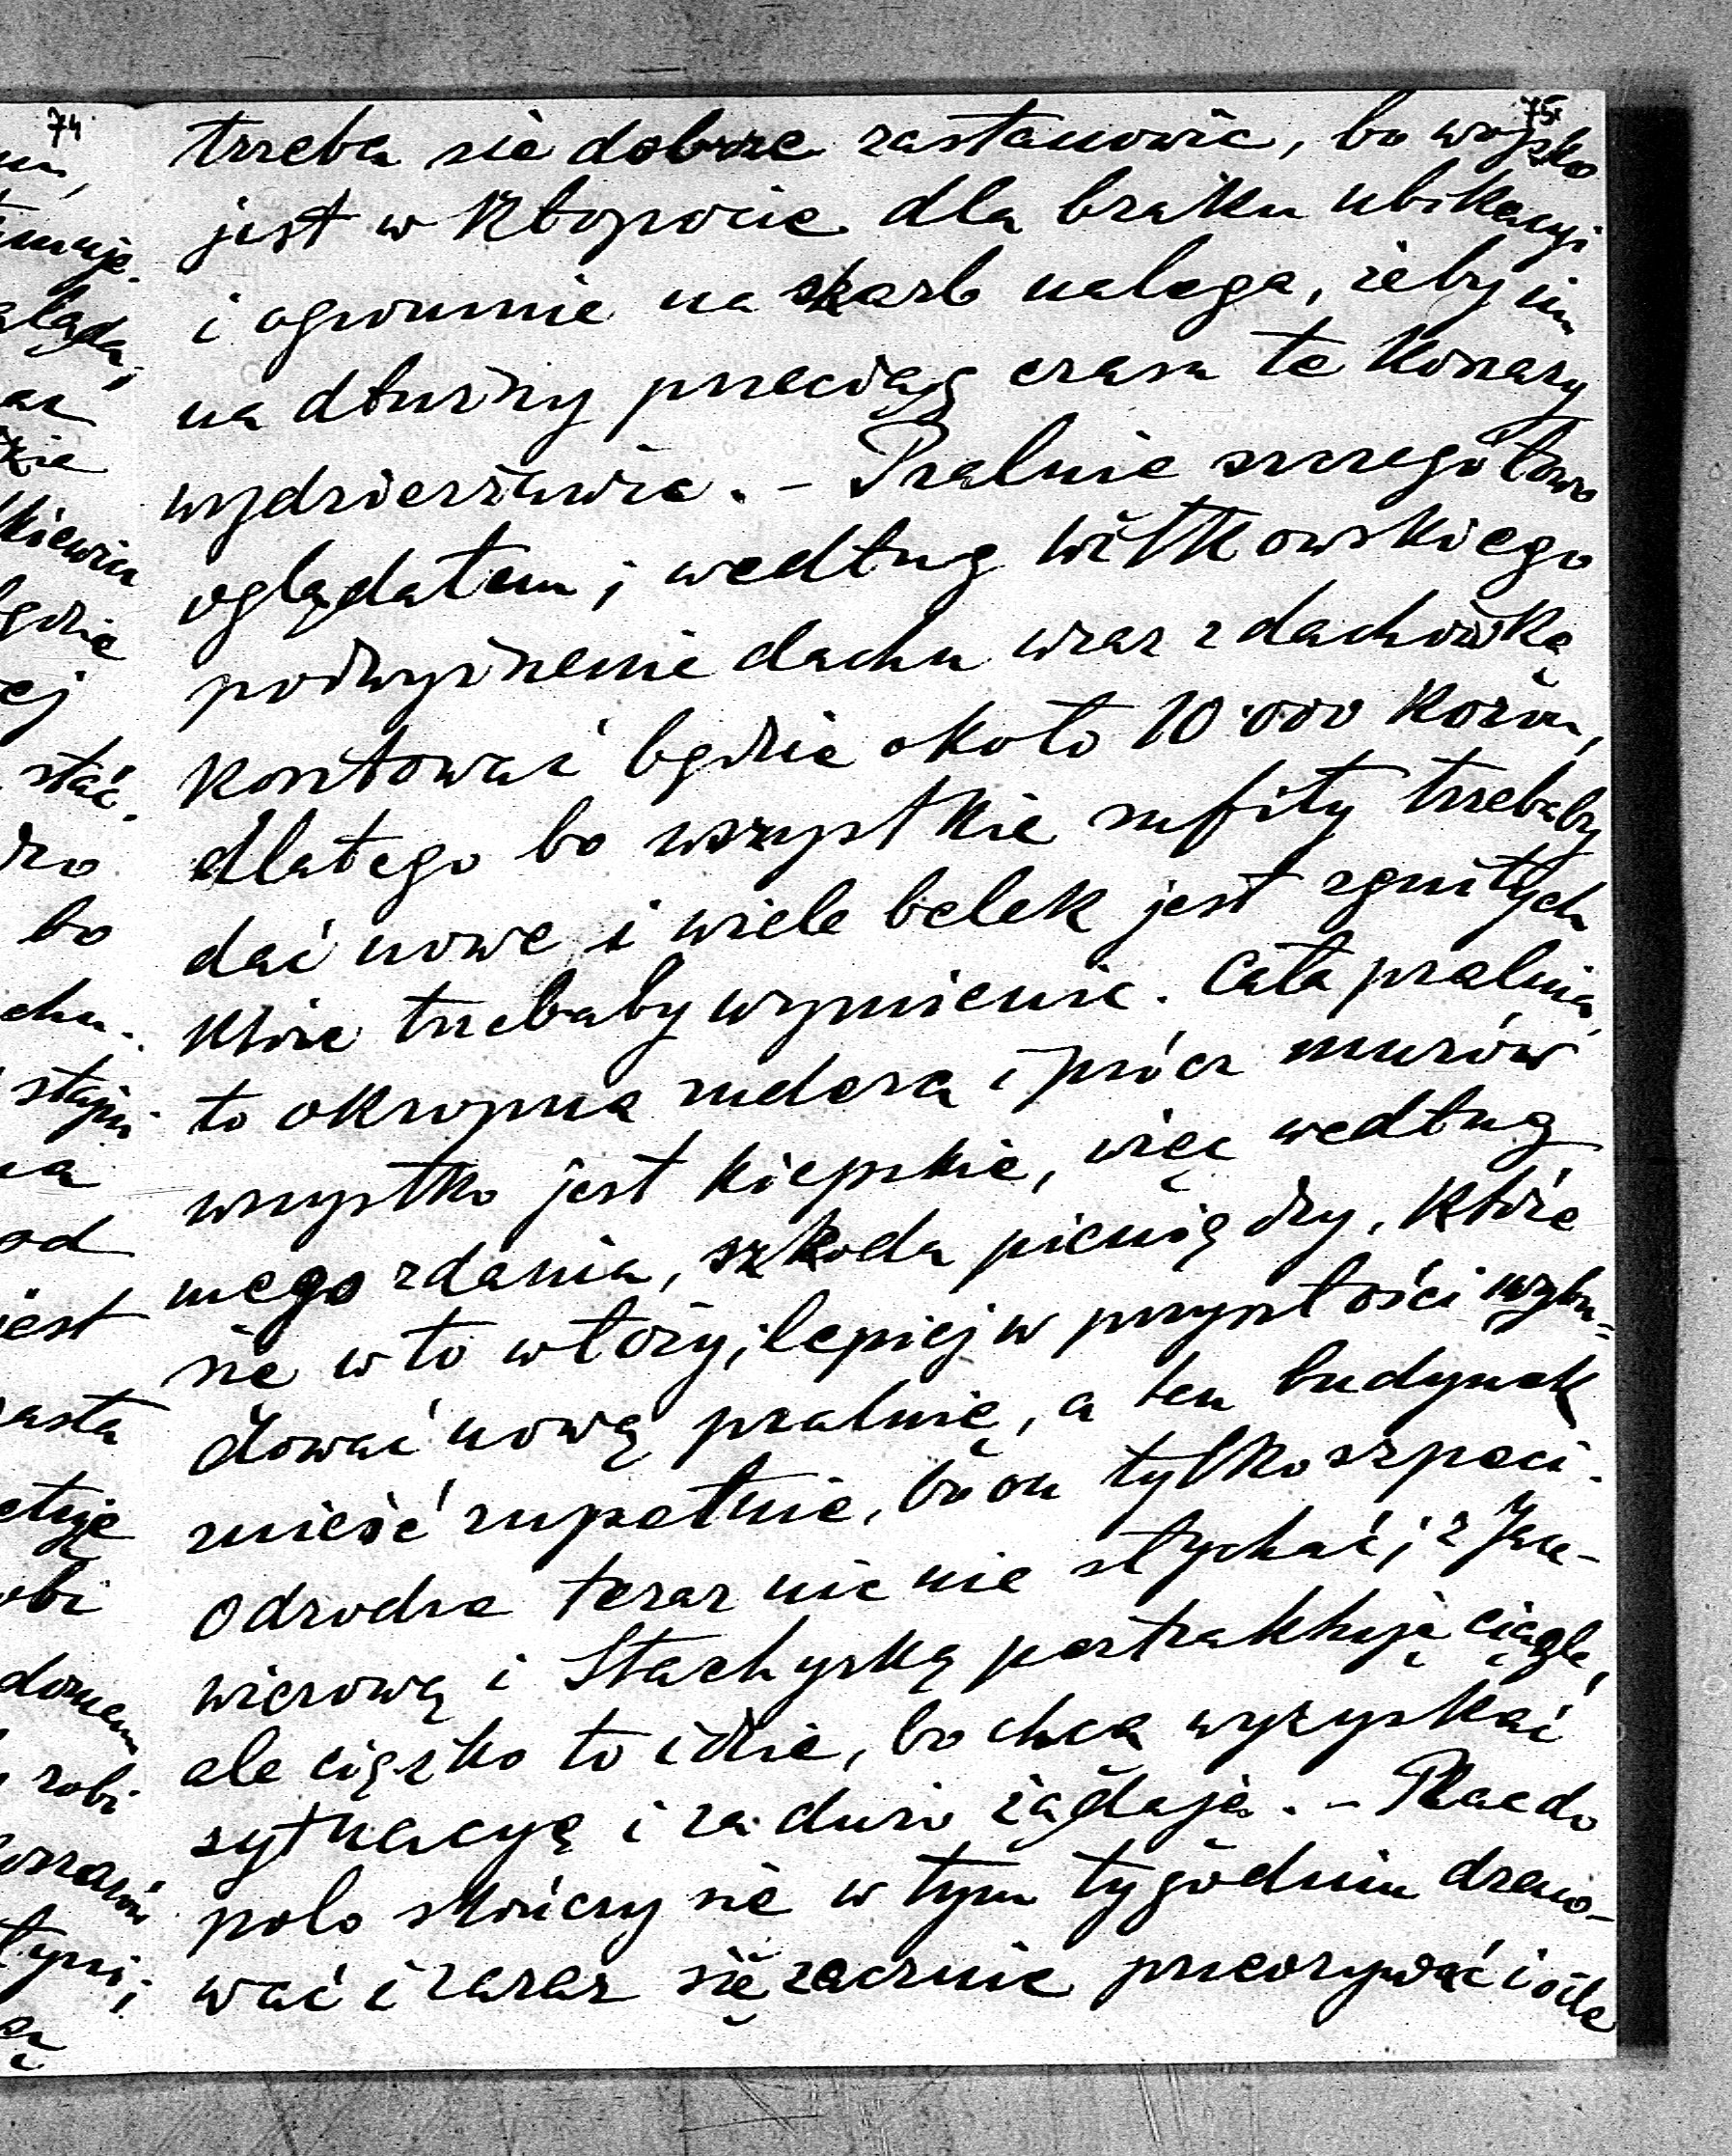 74
75.
trzeba sie dobrze zastanowic, bo wojsko
jest w kłopocie dla braku ubikacyi
i ogromnie na skarb nalega, żeby im
na dłuższy przeciąg czasu te koszary
wydzierżawić. - Pralnie szczegółowo
oglądałem; według Witkowskiego
podwyższenie dachu wraz z dachówką
kosztować będzie około 10.000 koron,
dlatego bo wszystkie sufity trzebaby
dać nowe i wiele belek jest zgniłych
które trzebaby wymienic. Cała pralnia,
to okropna rudera i prócz murów
wszystko jest kiepskie, więc według
mego zdania, szkoda pieniędzy, które
sie w to włoży; lepiej w przyszłości wybu=
dować nową pralnię, a ten budynek
znieść zupełnie, bo on tylko szpeci.
O drodze teraz nic nie słychać; z Jace-
wiczową i Stachyrką pertraktuję ciągle,
ale ciężko to idzie, bo chcą wyzyskać
sytuacyę i za dużo żądają. - Plac do
polo skończy sie w tym tygodniu dreno-
wać i zaraz się zacznie przeorywać i o ile